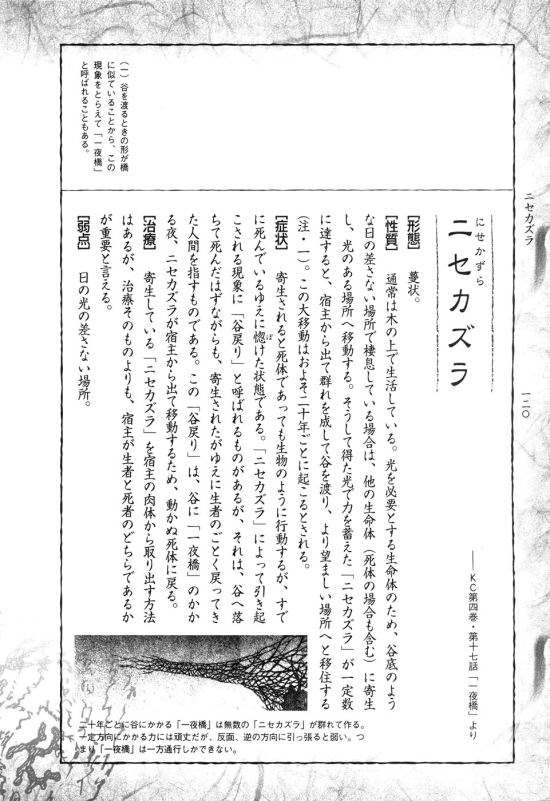 ニセカズラ
一二〇
にせかずら
ニセカズラ
――KC第四巻・第十七話「一夜橋」より
【形態】 蔓状。
【性質】 通常は木の上で生活している。光を必要とする生命体のため、谷底のよう
な日の差さない場所で棲息している場合は、他の生命体（死体の場合も含む）に寄生
し、光のある場所へ移動する。そうして得た光で力を蓄えた「ニセカズラ」が一定数
に達すると、宿主から出て群れを成して谷を渡り、より望ましい場所へと移住する
（注・一）。この大移動はおよそ二十年ごとに起こるとされる。
【症状】 寄生されると死体であっても生物のように行動するが、すで
に死んでいるゆえに惚けた状態である。「ニセカズラ」によって引き起
ぼ
こされる現象に「谷戻り」と呼ばれるものがあるが、それは、谷へ落
ちて死んだはずながらも、寄生されたがゆえに生者のごとく戻ってき
た人間を指すものである。この「谷戻り」は、谷に「一夜橋」のかか
る夜、ニセカズラが宿主から出て移動するため、動かぬ死体に戻る。
【治療】 寄生している「ニセカズラ」を宿主の肉体から取り出す方法
はあるが、治療そのものよりも、宿主が生者と死者のどちらであるか
が重要と言える。
【弱点】 日の光の差さない場所。
（一）谷を渡るときの形が橋
に似ていることから、この
現象をとらえて「一夜橋」
と呼ばれることもある。
二十年ごとに谷にかかる「一夜橋」は無数の「ニセカズラ」が群れて作る。
一定方向にかかる力には頑丈だが、反面、逆の方向に引っ張ると弱い。つ
まり「一夜橋」は一方通行しかできない。